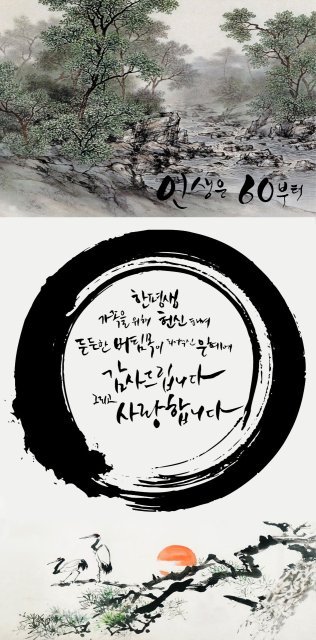 인생은 60부터
한평생
가족을 위해 헌신하며
든든한 버팀목이 되어주신 은혜에
감사드립니다
그리고
사랑합니다